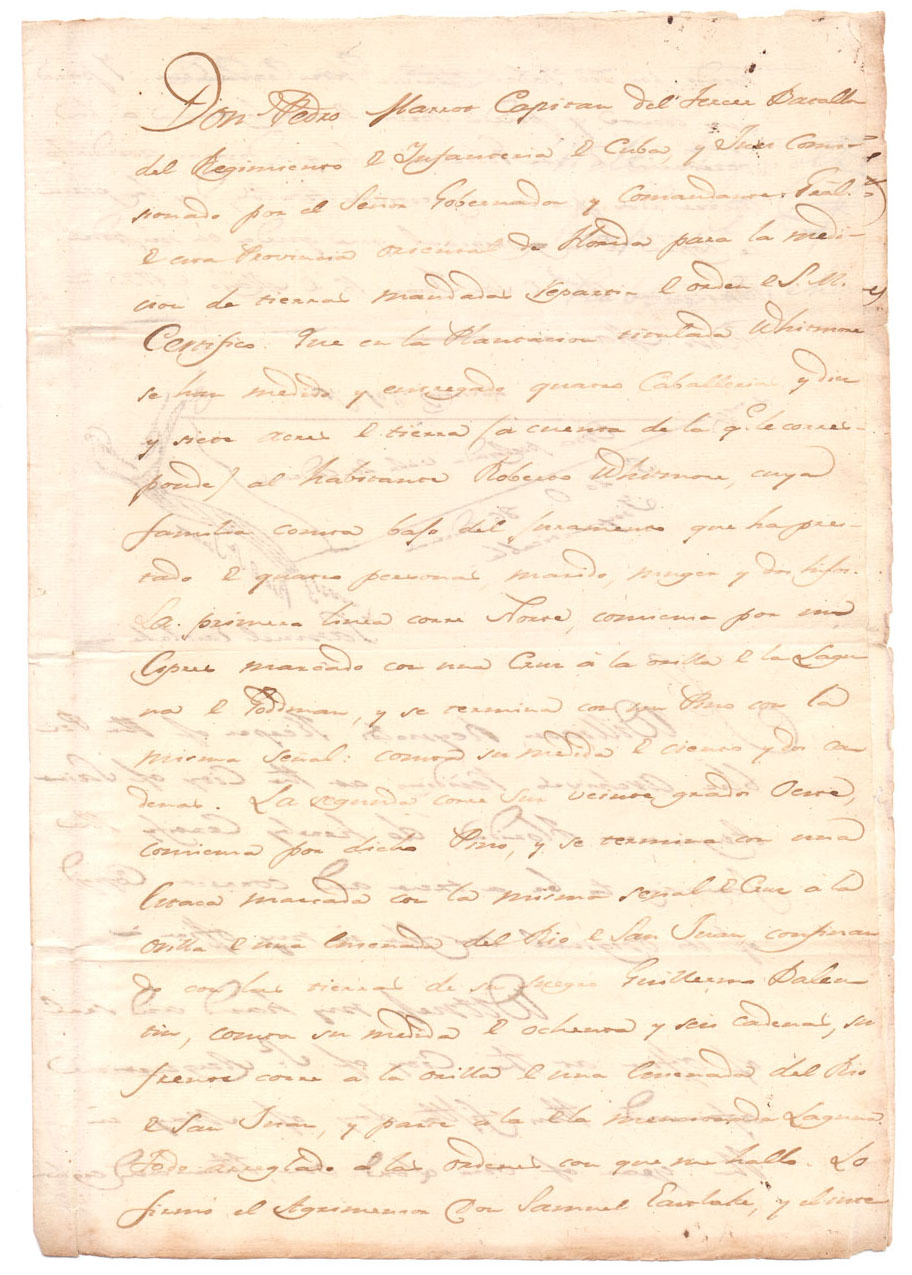 Don Pedro Marrot Capitan del Tercer Batallo
del Regimiento de Infanteria de Cuba, y Juez Comi-
sionado por el Señor Gobernador y Comandante Gral.
de esta Provincia oriental de Florida para la medi-
cion de tierras mandadas repartir de orden de S. M.
Certifico. Que en la Plantacion titulada Whitmore
se han medido y entregado quatro Caballerias y diez
y siete acres de tierra (a cuenta de la q.e le corres-
ponde) al habitante Roberto Whitmore, cuya
familia consta bajo del juramento que ha pres-
tado de quatro personas, marido, muger y dos hijos.
La primera linea corre Norte, comienza por un
Cipres marcado con una Cruz á la orilla de la Lagu
na de Goodman, y se termina con un Pino con la
misma señal: consta su medida de ciento y dos ca
denas. La segunda corre sur veinte grados Oeste,
comienza por dicho Pino, y se termina con una
Estaca marcada con la misma señal de Cruz á la
orilla de una Ensenada del Rio de San Juan, confinan
do con las tierras de su suegro Guillermo Valen
tin, consta su medida de ochenta y seis cadenas, su
frente corre á la orilla de una Ensenada del Rio
de San Juan, y parte á la de la mencionada Laguna
Todo arreglado a las ordenes con que me hallo. Lo
firmó el Agrimensor Don Samuel Eastlake, y el inte